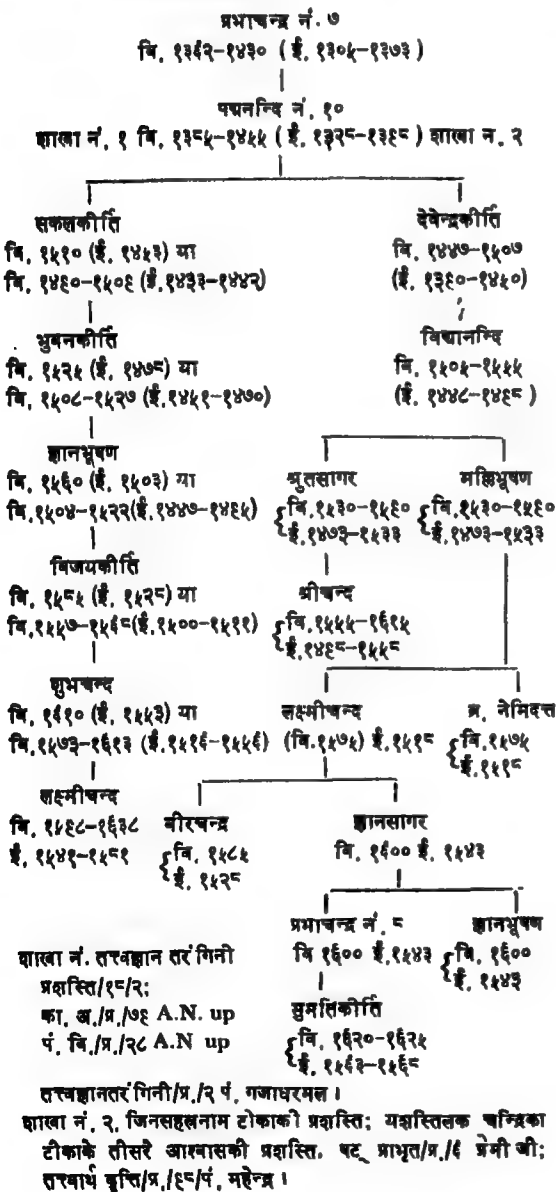 प्रभाचन्द्र नं. ७
वि. १३६२-१४३० (ई. १३०५-१३७३)
पद्मनन्दि नं. १०
शाखा नं. १ वि. १३८५-१४५५ (ई. १३२८-१३९८) शाखा न. २
सकलकीर्ति
वि. १५१० (ई. १४५३) या
वि. १४९०-१५०९ (ई. १४३३-१४४२)
भुवनकीर्ति
वि. १५२५ (ई. १४७८) या
वि. १५०८-१५२७ (ई.१४५१-१४७०)
ज्ञानभूषण
वि. १५६० (ई. १५०३) या
वि.१५०४-१५२२(ई.१४४७-१४६५)
विजयकीर्ति
वि. १५८५ (ई. १५२८) या
वि.१५५७-१५६८(ई.१५००-१५११)
शुभचन्द
वि. १६१० (ई. १५५३) या
वि.१५७३-१६१३ (ई.१५१६-१५५६)
लक्ष्मीचन्द
वि. १५९८-१६३८
ई. १५४१-१५८१
देवेन्द्रकीर्ति
वि. १४४७-१५०७
(ई. १३९०-१४५०)
विद्यानन्दि
वि. १५०५-१५५५
(ई. १४४८-१४९८)
श्रुतसागर
वि.१५३०-१५९०
ई.१४७३-१५३३
श्रीचन्द
वि.१५५५-१६१५
ई.१४९८-१५५८
मल्लिभूषण
वि.१५३०-१५९०
ई.१४७३-१५३३
लक्ष्मीचन्द
(वि.१५७५) ई.१५१८
ब्र. नेमिदत्त
वि.१५७५
ई.१५१८
वीरचन्द्र
वि. १५८५
ई. १५२८
ज्ञानसागर
वि. १६०० ई. १५४३
प्रभाचन्द्र नं. ८
वि १६०० ई.१५४३
सुमतिकीर्ति
वि. १६२०-१६२५
ई.१५६३-१५६८
ज्ञानभूषण
वि. १६००
ई. १५४३
शाखा नं. तत्त्वज्ञान तरंगिनी
प्रशस्ति/१८/२;
का. अ./प्र./७९ A.N. up
पं. वि./प्र./२८ A.N up
तत्त्वज्ञानतरंगिनी/प्र./२ पं. गजाधरमल।
शाखा नं. २. जिनसहस्रनाम टोकाकी प्रशस्ति; यशस्तिलक चन्द्रिका
टीकाके तीसरे आश्वासकी प्रशस्ति. षट् प्राभृत/प्र./६ प्रेमी जी;
तत्त्वार्थ वृत्ति/प्र./९८/पं. महेन्द्र।